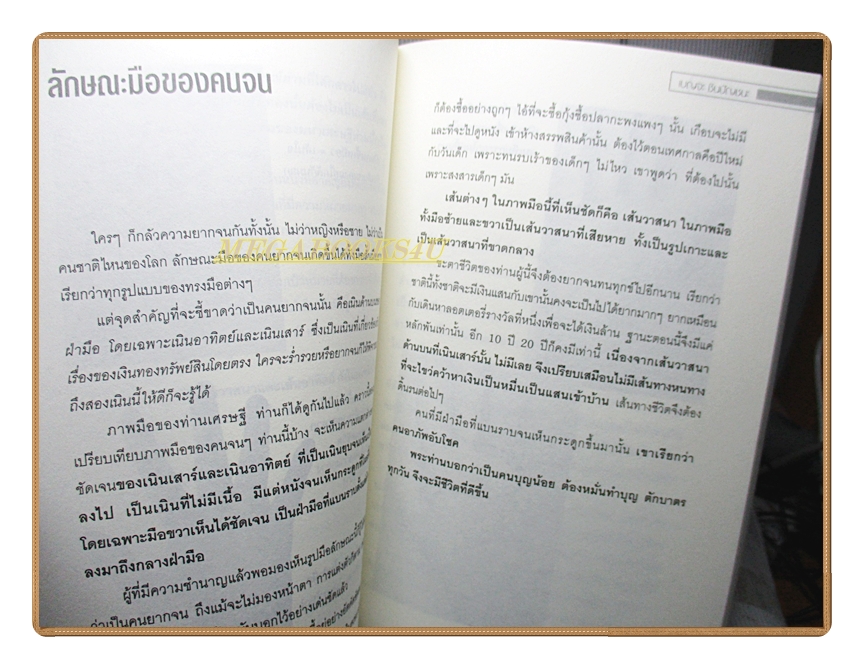 ลักษณะมือของคนจน
ใครๆ ก็กลัวความยากจนกันทั้งนั้น ไม่ว่าหญิงหรือชาย
คนชาติไหนของโลก ลักษณะมือของคนยากจนเกิดขึ้นได้ทั้งมือ
เรียกว่าทุกรูปแบบของทรงมือต่างๆ
แต่จุดสำคัญที่จะชี้ขาดว่าเป็นคนยากจนนั้น คือเนินด้านบน
ฝ่ามือ โดยเฉพาะเนินอาทิตย์และเนินเสาร์ ซึ่งเป็นเนินที่
เรื่องของเงินทองทรัพย์สินโดยตรง ใครจะร่ำรวยหรือยากจนก็
ถึงสองเนินนี้ให้ดีก็จะรู้ได้
ภาพมือของท่านเศรษฐี ท่านก็ได้ดูกันไปแล้ว
เปรียบเทียบภาพมือของคนจนๆ ท่านนี้บ้าง จะเห็นความ
ชัดเจนของเนินเสาร์และเนินอาทิตย์ ที่เป็นเนินยุบจน
ลงไป เป็นเนินที่ไม่มีเนื้อ มีแต่หนังจนเห็นกระดูก
โดยเฉพาะมือขวาเห็นได้ชัดเจน เป็นฝ่ามือที่แบนราบ
ลงมาถึงกลางฝ่ามือ
ผู้ที่มีความชำนาญแล้วพอมองเห็นรูปมือลักษณะนี้
ว่าเป็นคนยากจน ถึงแม้จะไม่มองหน้าตา การแต่งตัว
บอกไว้อย่างเด่นชัดแล้ว
MEGABOOKS4U
เบญจะ ชินปัญชนะ
ก็ต้องซื้ออย่างถูกๆ ไอ้ที่จะซื้อกุ้งซื้อปลากะพงแพงๆ นั้น เกือบจะไม่มี
และที่จะไปดูหนัง เข้าห้างสรรพสินค้านั้น ต้องไว้ตอนเทศกาลคือปีใหม่
กับวันเด็ก เพราะทนรบเร้าของเด็กๆ ไม่ไหว เขาพูดว่า ที่ต้องไปนั้น
เพราะสงสารเด็กๆ มัน
เส้นต่างๆ ในภาพมือนี้ที่เห็นชัดก็คือ เส้นวาสนา ในภาพมือ
ทั้งมือซ้ายและขวาเป็นเส้นวาสนาที่เสียหาย ทั้งเป็นรูปเกาะและ
เป็นเส้นวาสนาที่ขาดกลาง
ชะตาชีวิตของท่านผู้นี้จึงต้องยากจนทนทุกข์ไปอีกนาน เรียกว่า
ชาตินี้ทั้งชาติจะมีเงินแสนกับเขานั้นคงจะเป็นไปได้ยากมากๆ ยากเหมือน
กับเดินหาลอตเตอรี่รางวัลที่หนึ่งเพื่อจะได้เงินล้าน ฐานะตอนนี้จึงมีแค่
หลักพันเท่านั้น อีก 10 ปี 20 ปีก็คงมีเท่านี้ เนื่องจากเส้นวาสนา
ด้านบนที่เนินเสาร์นั้น ไม่มีเลย จึงเปรียบเสมือนไม่มีเส้นทางหนทาง
ที่จะไขว่คว้าหาเงินเป็นหมื่นเป็นแสนเข้าบ้าน เส้นทางชีวิตจึงต้อง
ดิ้นรนต่อไปๆ
คนที่มีฝ่ามือที่แบนราบจนเห็นกระดูกขึ้นมานั้น เขาเรียกว่า
คนอาภัพอับโชค
พระท่านบอกว่าเป็นคนบุญน้อย ต้องหมั่นทำบุญ ตักบาตร
ทุกวัน จึงจะมีชีวิตที่ดีขึ้น